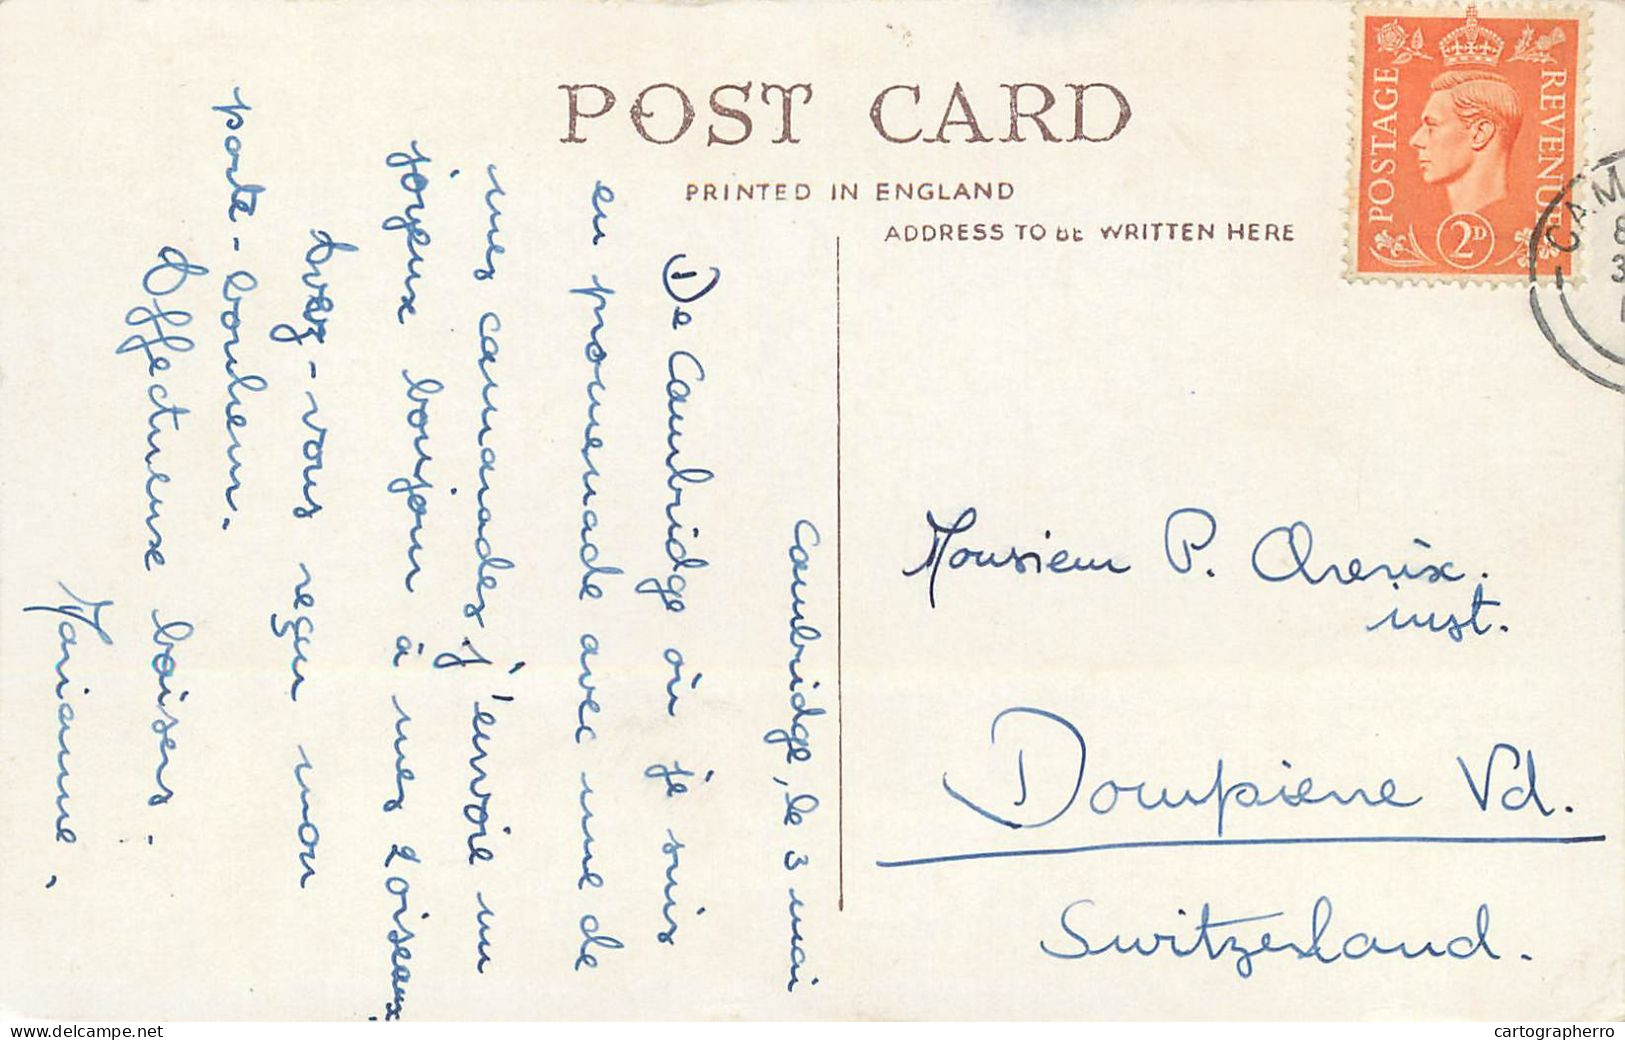 POST CARD
PRINTED IN ENGLAND
ADDRESS TO BE WRITTEN HERE
POSTAGE
REVENUE
2D
CAM
8
3
Cambridge, le 3 mai
De Cambridge où je suis
en promenade avec une de
mes camarades, j'envoie un
joyeux bonjour à mes 2 oiseaux.
Avez-vous reçu mon
porte-bonheur.
Affectueux baisers.
Marianne.
Monsieur P.
inst.
Dompierre Vd.
Switzerland.
www.delcampe.net
cartographerro